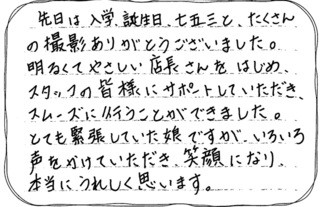 先日は、入学、誕生日、七五三と、たくさん
の撮影ありがとうございました。
明るくてやさしい店長さんをはじめ、
スタッフの皆様にサポートしていただき、
スムーズに行うことができました。
とても緊張していた娘ですが、いろいろ
声をかけていただき、笑顔になり、
本当にうれしく思います。